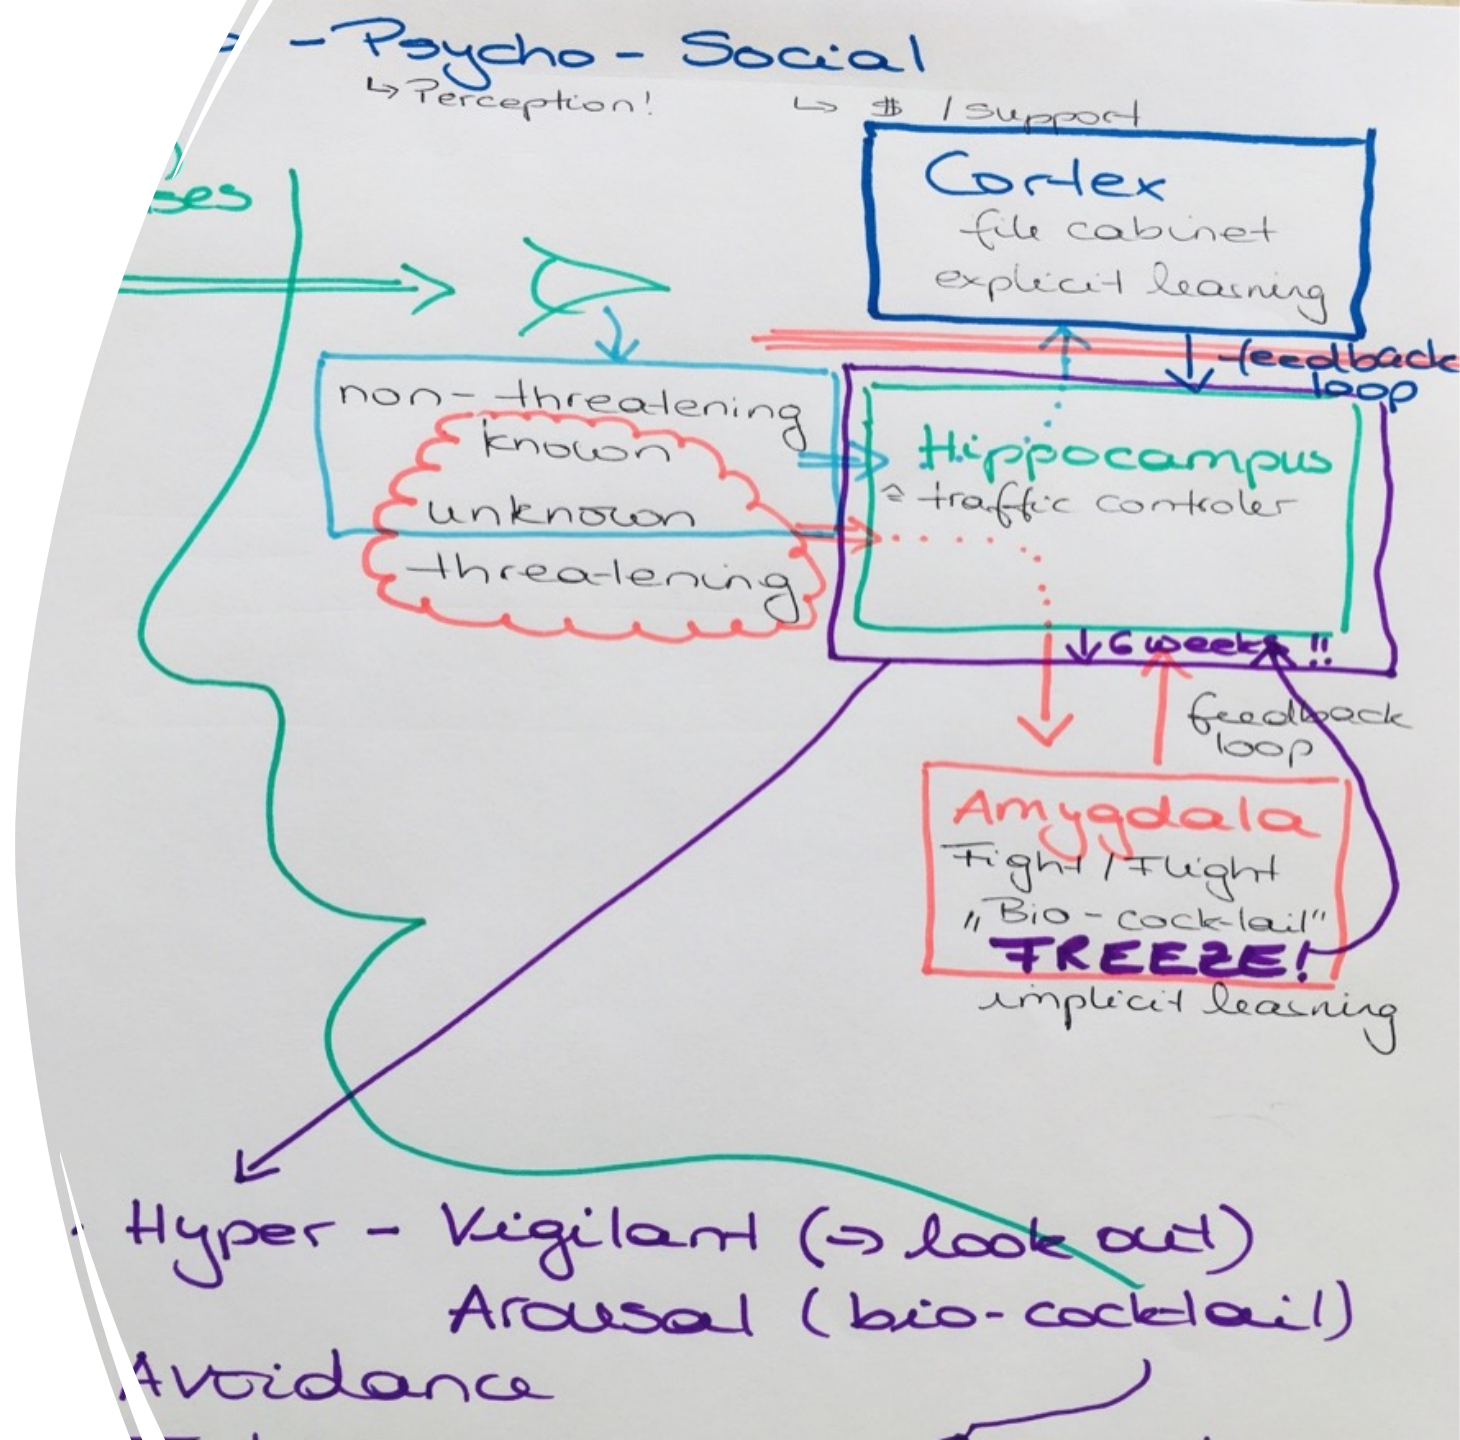 - Psycho - Social
↳ Perception!
↳ $ / support
Cortex
file cabinet
explicit learning
feedback
loop
non-threatening
known
unknown
threatening
Hippocampus
≙ traffic controler
↓ 6 weeks !!
feedback
loop
Amygdala
Fight / Flight
„Bio-cocktail"
FREEZE!
implicit learning
Hyper - Vigilant (→ look out)
Arousal (bio-cocktail)
Avoidance